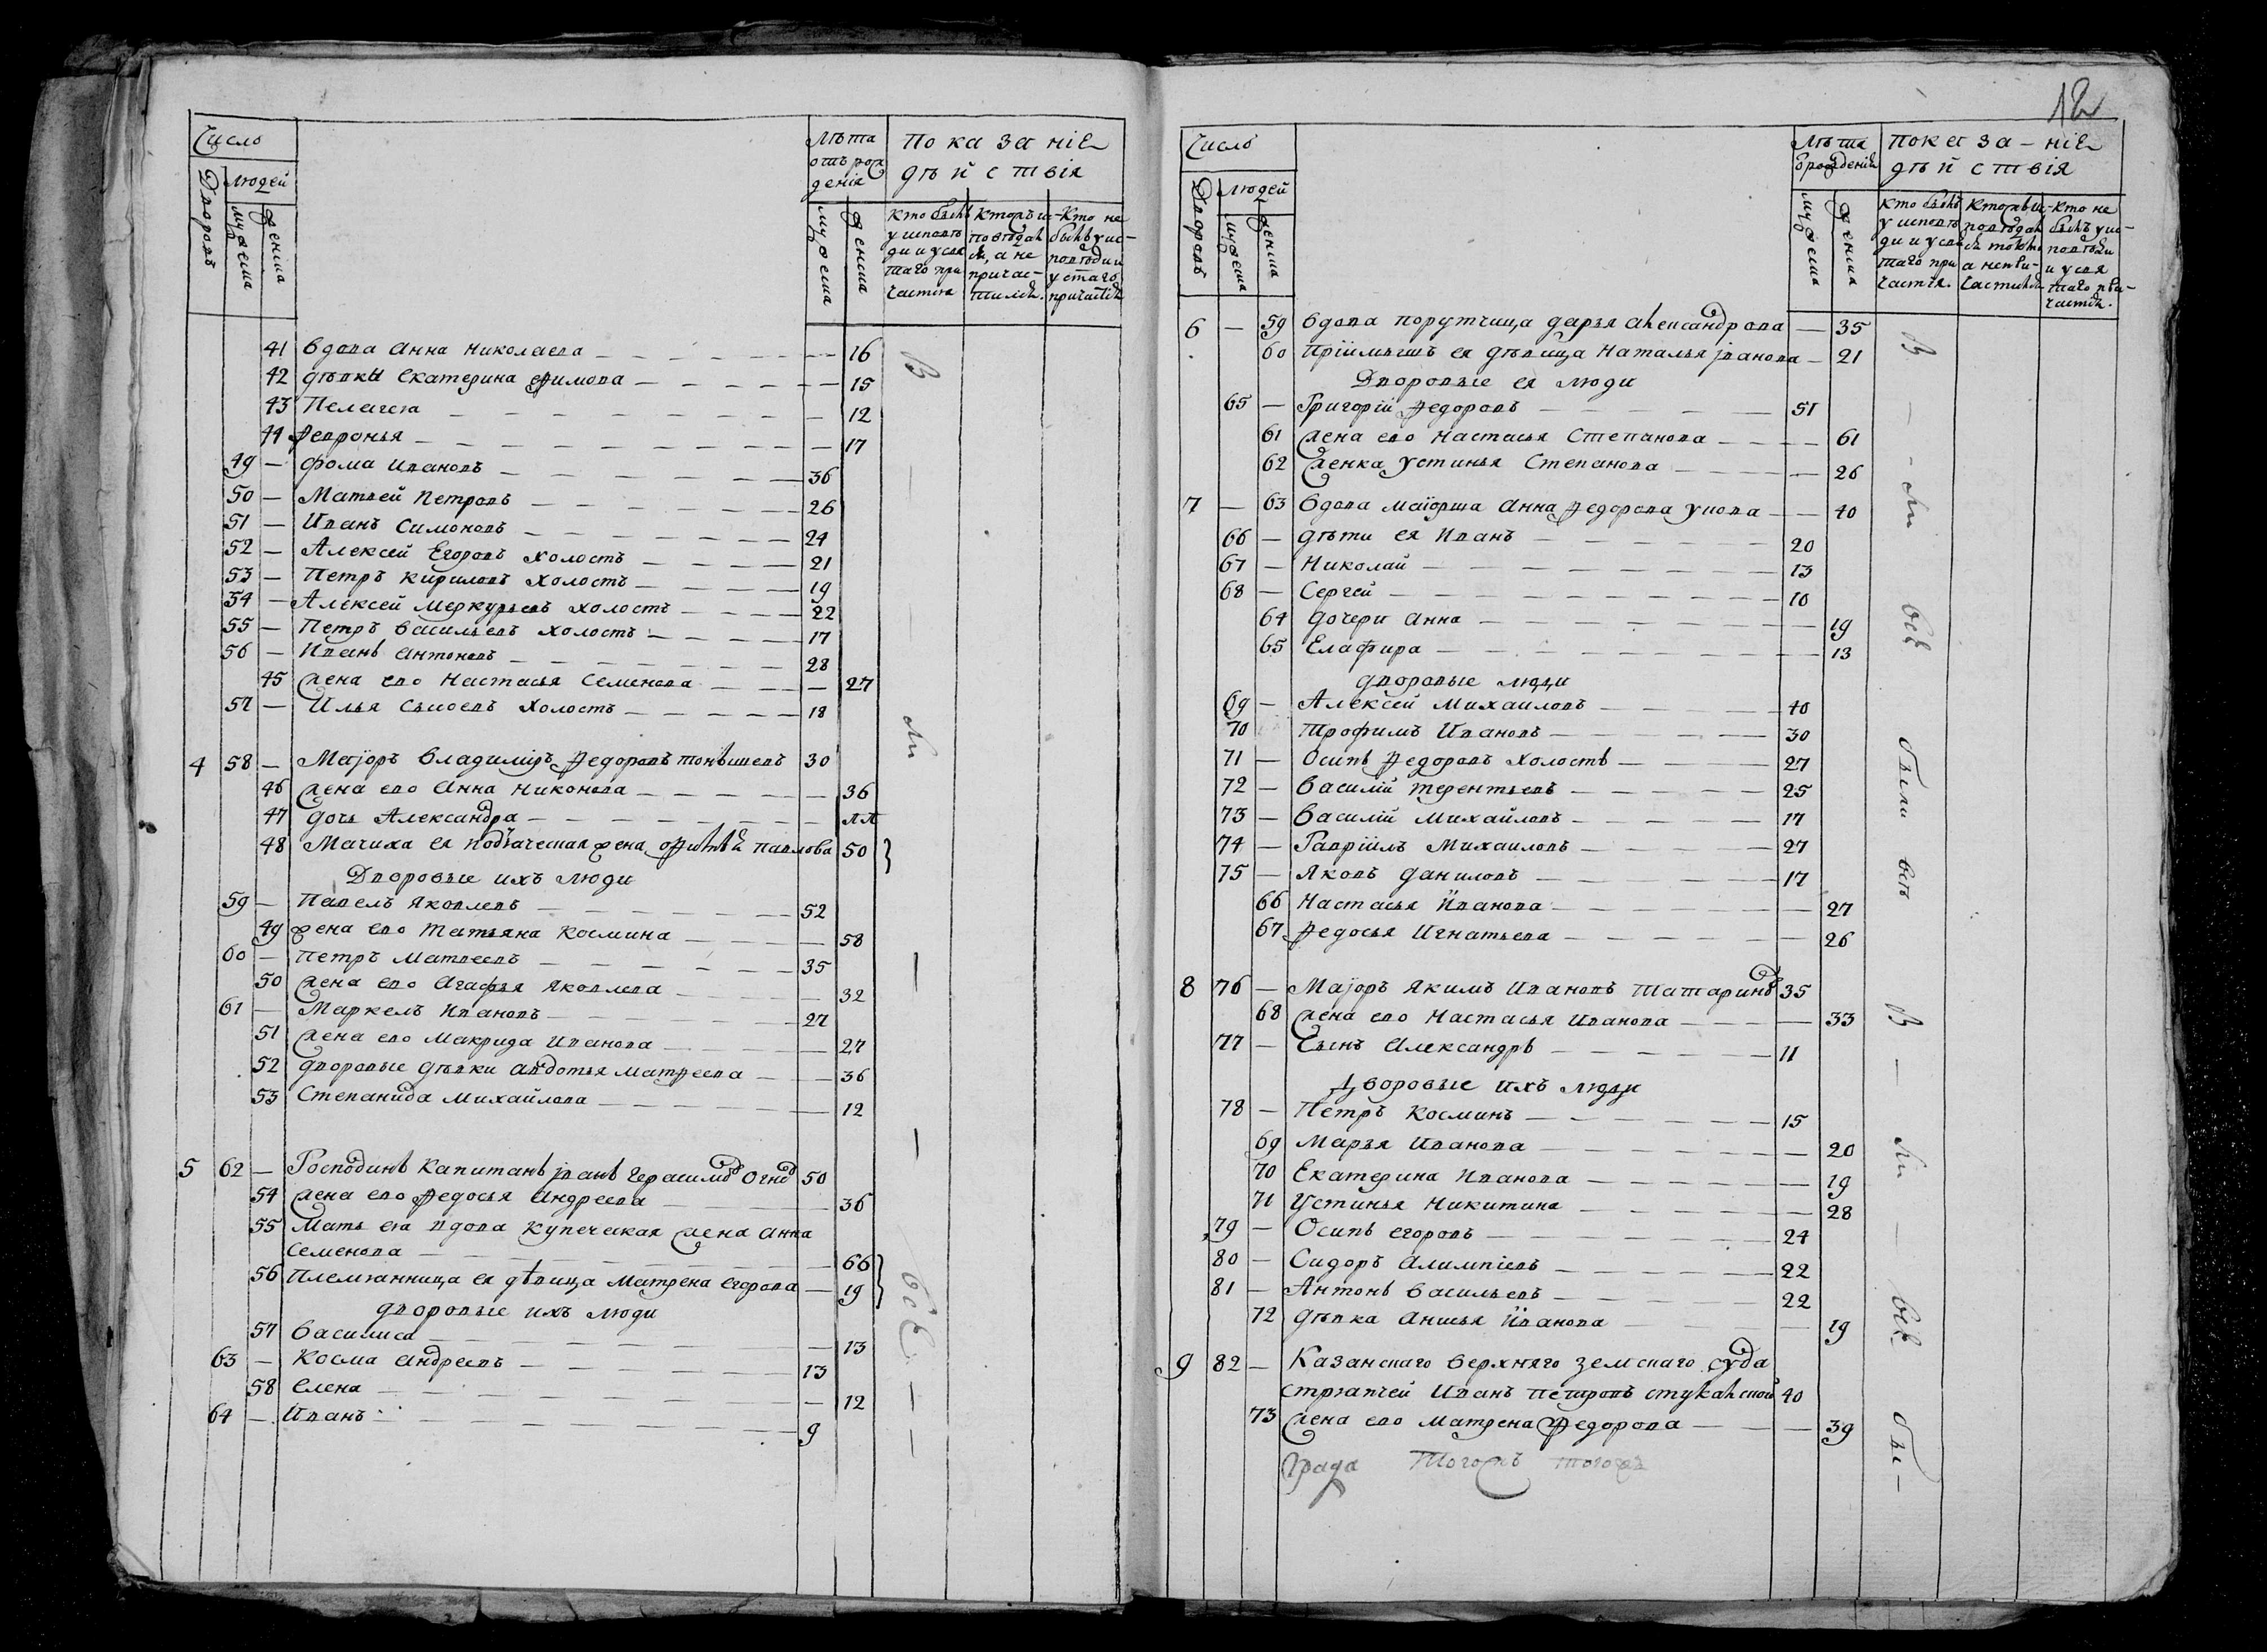 Число
Дворовъ
Людей
мужеска
женска
Лѣта отъ рож
денія
мужеска
женска
Показаніе
дѣйствія
Кто былъ
у исповѣ
ди и у свя
таго при
частія
Которыи
исповѣдал
ся, а не
причас-
тился.
Кто не
былъ у ис-
повѣди и
у стаго
причастія
41 вдова Анна Николаева — 16
42 дѣвки Екатерина Ефимова — 15
43 Пелагея — 12
44 Февронья — 17
49 — Фома Ивановъ — 36
50 — Матвей Петровъ — 26
51 — Иванъ Симоновъ — 24
52 — Алексей Егоровъ холостъ — 21
53 — Петръ Кириловъ холостъ — 19
54 — Алексей Меркурьевъ холостъ — 22
55 — Петръ Васильевъ холостъ — 17
56 — Иванъ Антоновъ — 28
45 жена ево Настасья Семенова — 27
57 — Илья Сысоевъ холостъ — 18
4 58 — Маіоръ Владимиръ Федоровъ 30
46 жена ево Анна Никонова — 36
47 дочь Александра —
48 Мачиха ея подъяческая жена Павлова 50
Дворовые ихъ люди
59 — Павелъ Яковлевъ — 52
49 жена ево Татьяна Космина — 58
60 — Петръ Матвеевъ — 35
50 жена ево Агафья Яковлева — 32
61 — Маркелъ Ивановъ — 27
51 жена ево Макрида Иванова — 27
52 дворовые дѣвки Авдотья Матфеева — 36
53 Степанида Михайлова — 12
5 62 — Господинъ Капитанъ Іванъ Герасимовъ 50
54 жена ево Федосья Андреева — 36
55 Мать ея вдова купеческая жена Анна
Семенова — 66
56 Племянница ея дѣвица Матрена Егорова — 19
дворовые ихъ люди
57 Василиса — 13
63 — Косма Андреевъ — 13
58 Елена — 12
64 — Иванъ — 9
В — ли — — всѣ — —
12
Число
Дворовъ
Людей
мужеска
женска
Лѣта
рожденія
мужеска
женска
Показа-ніе
дѣйствія
Кто былъ
у исповѣ
ди и у свя
таго при
частія.
Которыи
исповѣдал
ся токмо
а непри-
частился
Кто не
былъ у ис-
повѣди
и у свя
таго при-
частія.
6 — 59 вдова порутчица Дарья Александрова — 35
60 Пріимышъ ея дѣвица Наталья Іванова — 21
Дворовые ея люди
65 — Григорій Федоровъ — 51
61 жена ево Настасья Степанова — 61
62 женка Устинья Степанова — 26
7 — 63 вдова маіорша Анна Федорова — 40
66 — дѣти ея Иванъ — 20
67 — Николай — 13
68 — Сергей — 10
64 дочери Анна — 19
65 Елафира — 13
дворовые люди
69 — Алексей Михаиловъ — 40
70 Трофимъ Ивановъ — 30
71 — Осипъ Федоровъ холостъ — 27
72 — Василій Терентьевъ — 25
73 — Василій Михайловъ — 17
74 — Гавріилъ Михаиловъ — 27
75 — Яковъ Даниловъ — 17
66 Настасья Иванова — 27
67 Федосья Игнатьева — 26
8 76 — Маіоръ Якимъ Ивановъ Татариновъ 35
68 жена ево Настасья Иванова — 33
77 — Сынъ Александръ — 11
Дворовые ихъ люди
78 — Петръ Косминъ — 15
69 Марья Иванова — 20
70 Екатерина Иванова — 19
71 Устинья Никитина — 28
79 — Осипъ Егоровъ — 24
80 — Сидоръ Алимпіевъ — 22
81 — Антонъ Васильевъ — 22
72 дѣвка Анисья Иванова — 19
9 82 — Казанскаго верхняго земскаго суда
стряпчей Иванъ Петровъ 40
73 жена ево Матрена Федорова — 39
града
В — — ли всѣ были всѣ В — ли — всѣ бы-